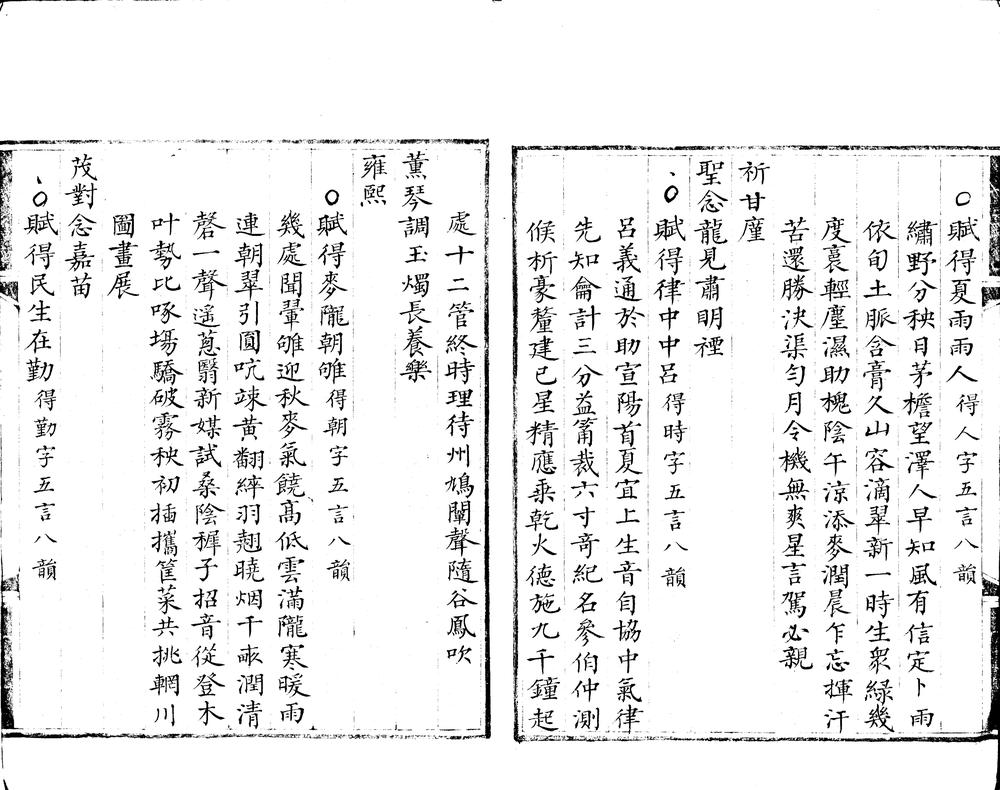 ○賦得夏雨雨人得人字五言八韻
繡野分秧日茅檐望澤人早知風有信定卜雨
依旬土脈含膏久山容滴翠新一時生衆綠幾
度裛輕塵濕助槐陰午涼添麥潤晨乍忘揮汗
苦還勝決渠勻月令機無爽星言駕必親
祈甘𩆍
聖念龍見肅明禋
、○賦得律中中呂得時字五言八韻
呂義通於助宣陽首夏宜上生音自協中氣律
先知龠計三分益筩裁六寸奇紀名參伯仲測
候析豪釐建巳星精應乘乾火德施九千鐘起
處十二管終時理待州鳩闡聲隨谷鳳吹
薰琴調玉燭長養樂
雍熙
○賦得麥隴朝雊得朝字五言八韻
幾處聞翬雊迎秋麥氣饒高低雲滿隴寒暖雨
連朝翠引圓吭竦黃翻綷羽翹曉烟千畝潤清
磬一聲遥蒽翳新媒試桑陰穉子招音從登木
叶勢比啄場驕破霧秧初插攜筐菜共挑輞川
圖畫展
茂對念嘉苗
、○賦得民生在勤得勤字五言八韻